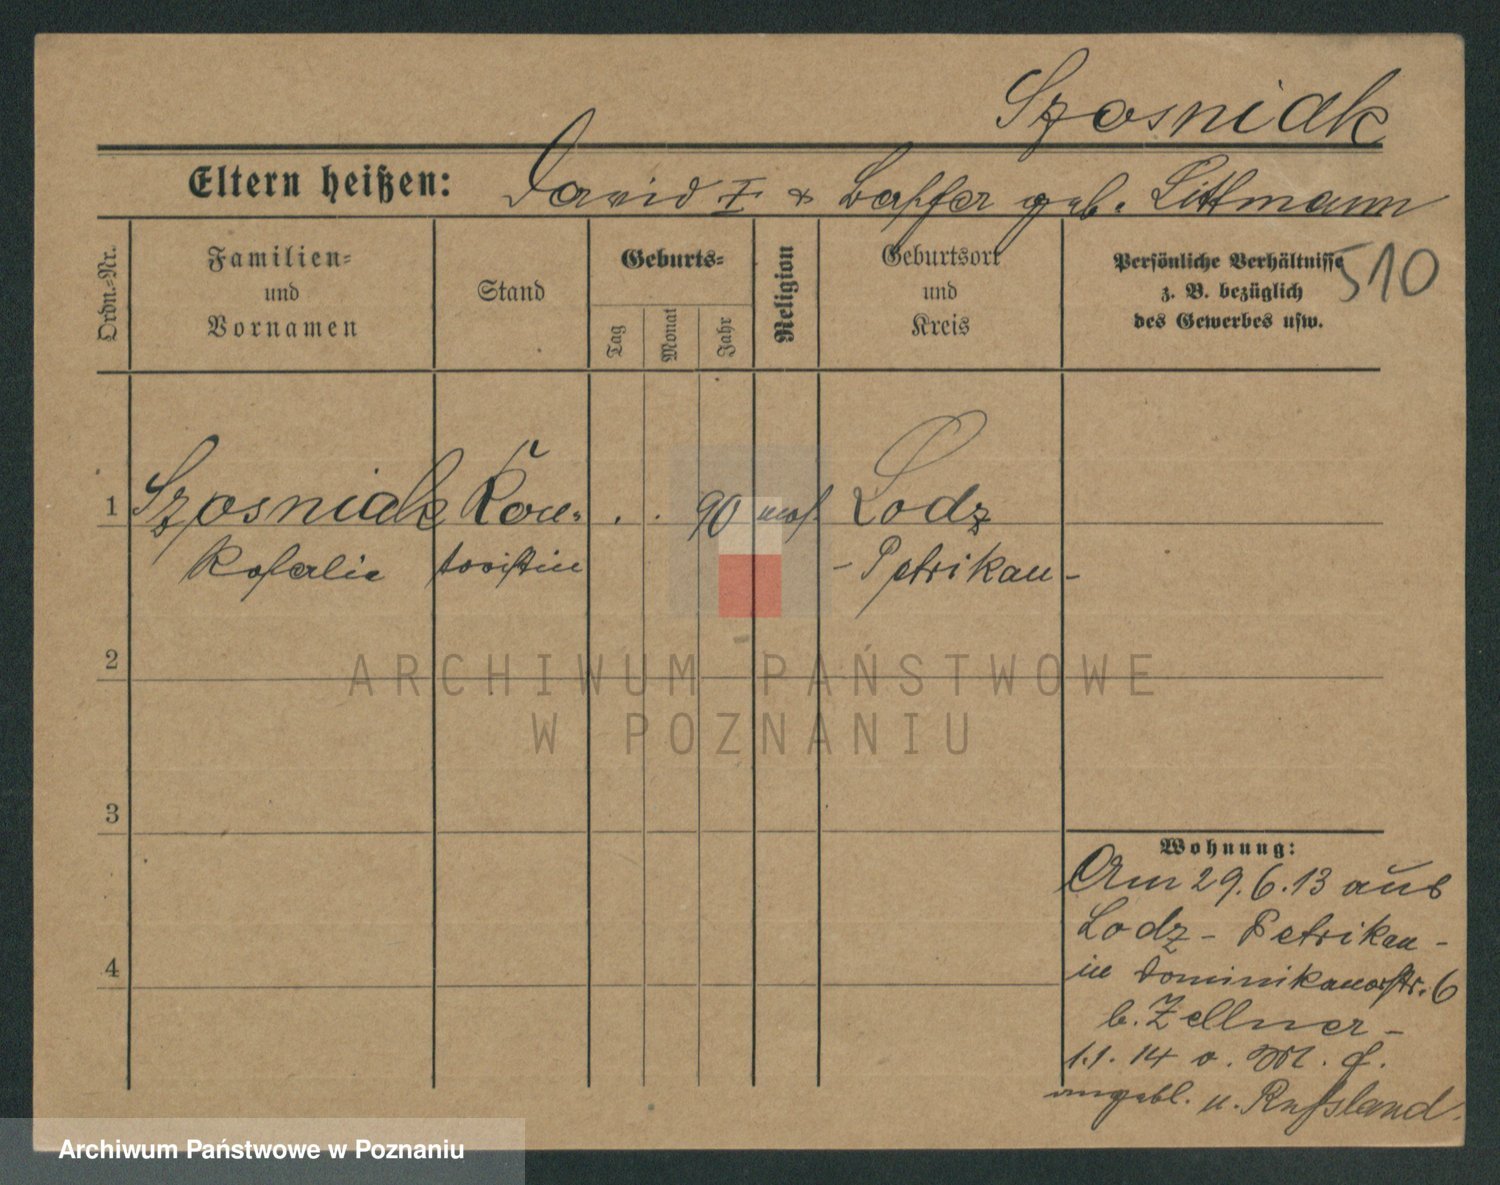 Szosniak
Eltern heißen: David I & geb. Littmann
510
Ordn.-Nr.
Familien-
und
Vornamen
Stand
Geburts-
Tag
Monat
Jahr
Religion
Geburtsort
und
Kreis
Persönliche Verhältnisse
z. B. bezüglich
des Gewerbes usw.
1 Szosniak Kon- . . 90 mos. Lodz
Rosalie toristin - Petrikau -
2
3
4
Wohnung:
Am 29.6.13 aus
Lodz - Petrikau -
in Dominikanerstr. 6
b. Zellner -
1.1.14 o. M. f.
angebl. n. Russland.
ARCHIWUM PAŃSTWOWE
W POZNANIU
Archiwum Państwowe w Poznaniu